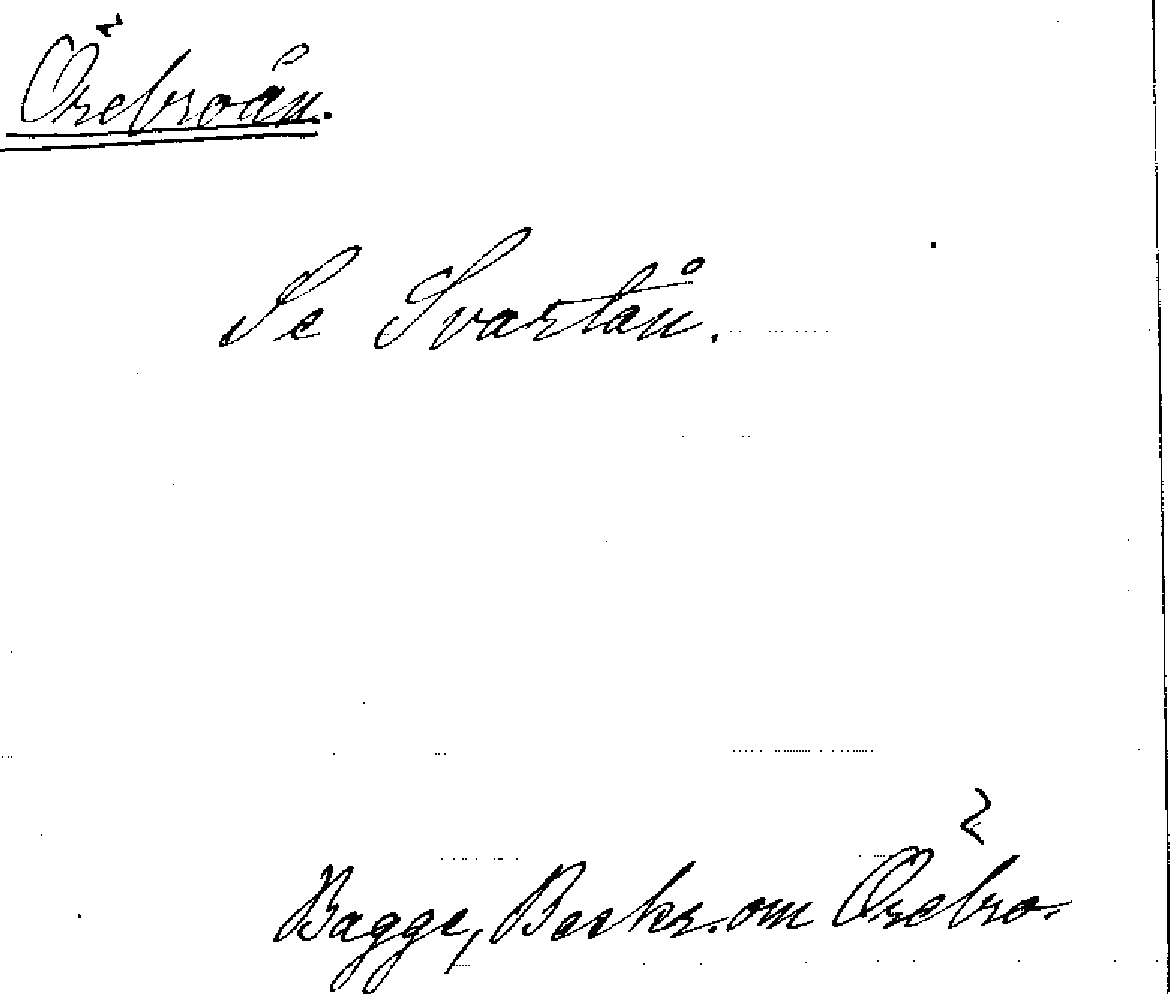 Örebroån.
Se Svartån.
Bagge, Beskr. om Örebro.